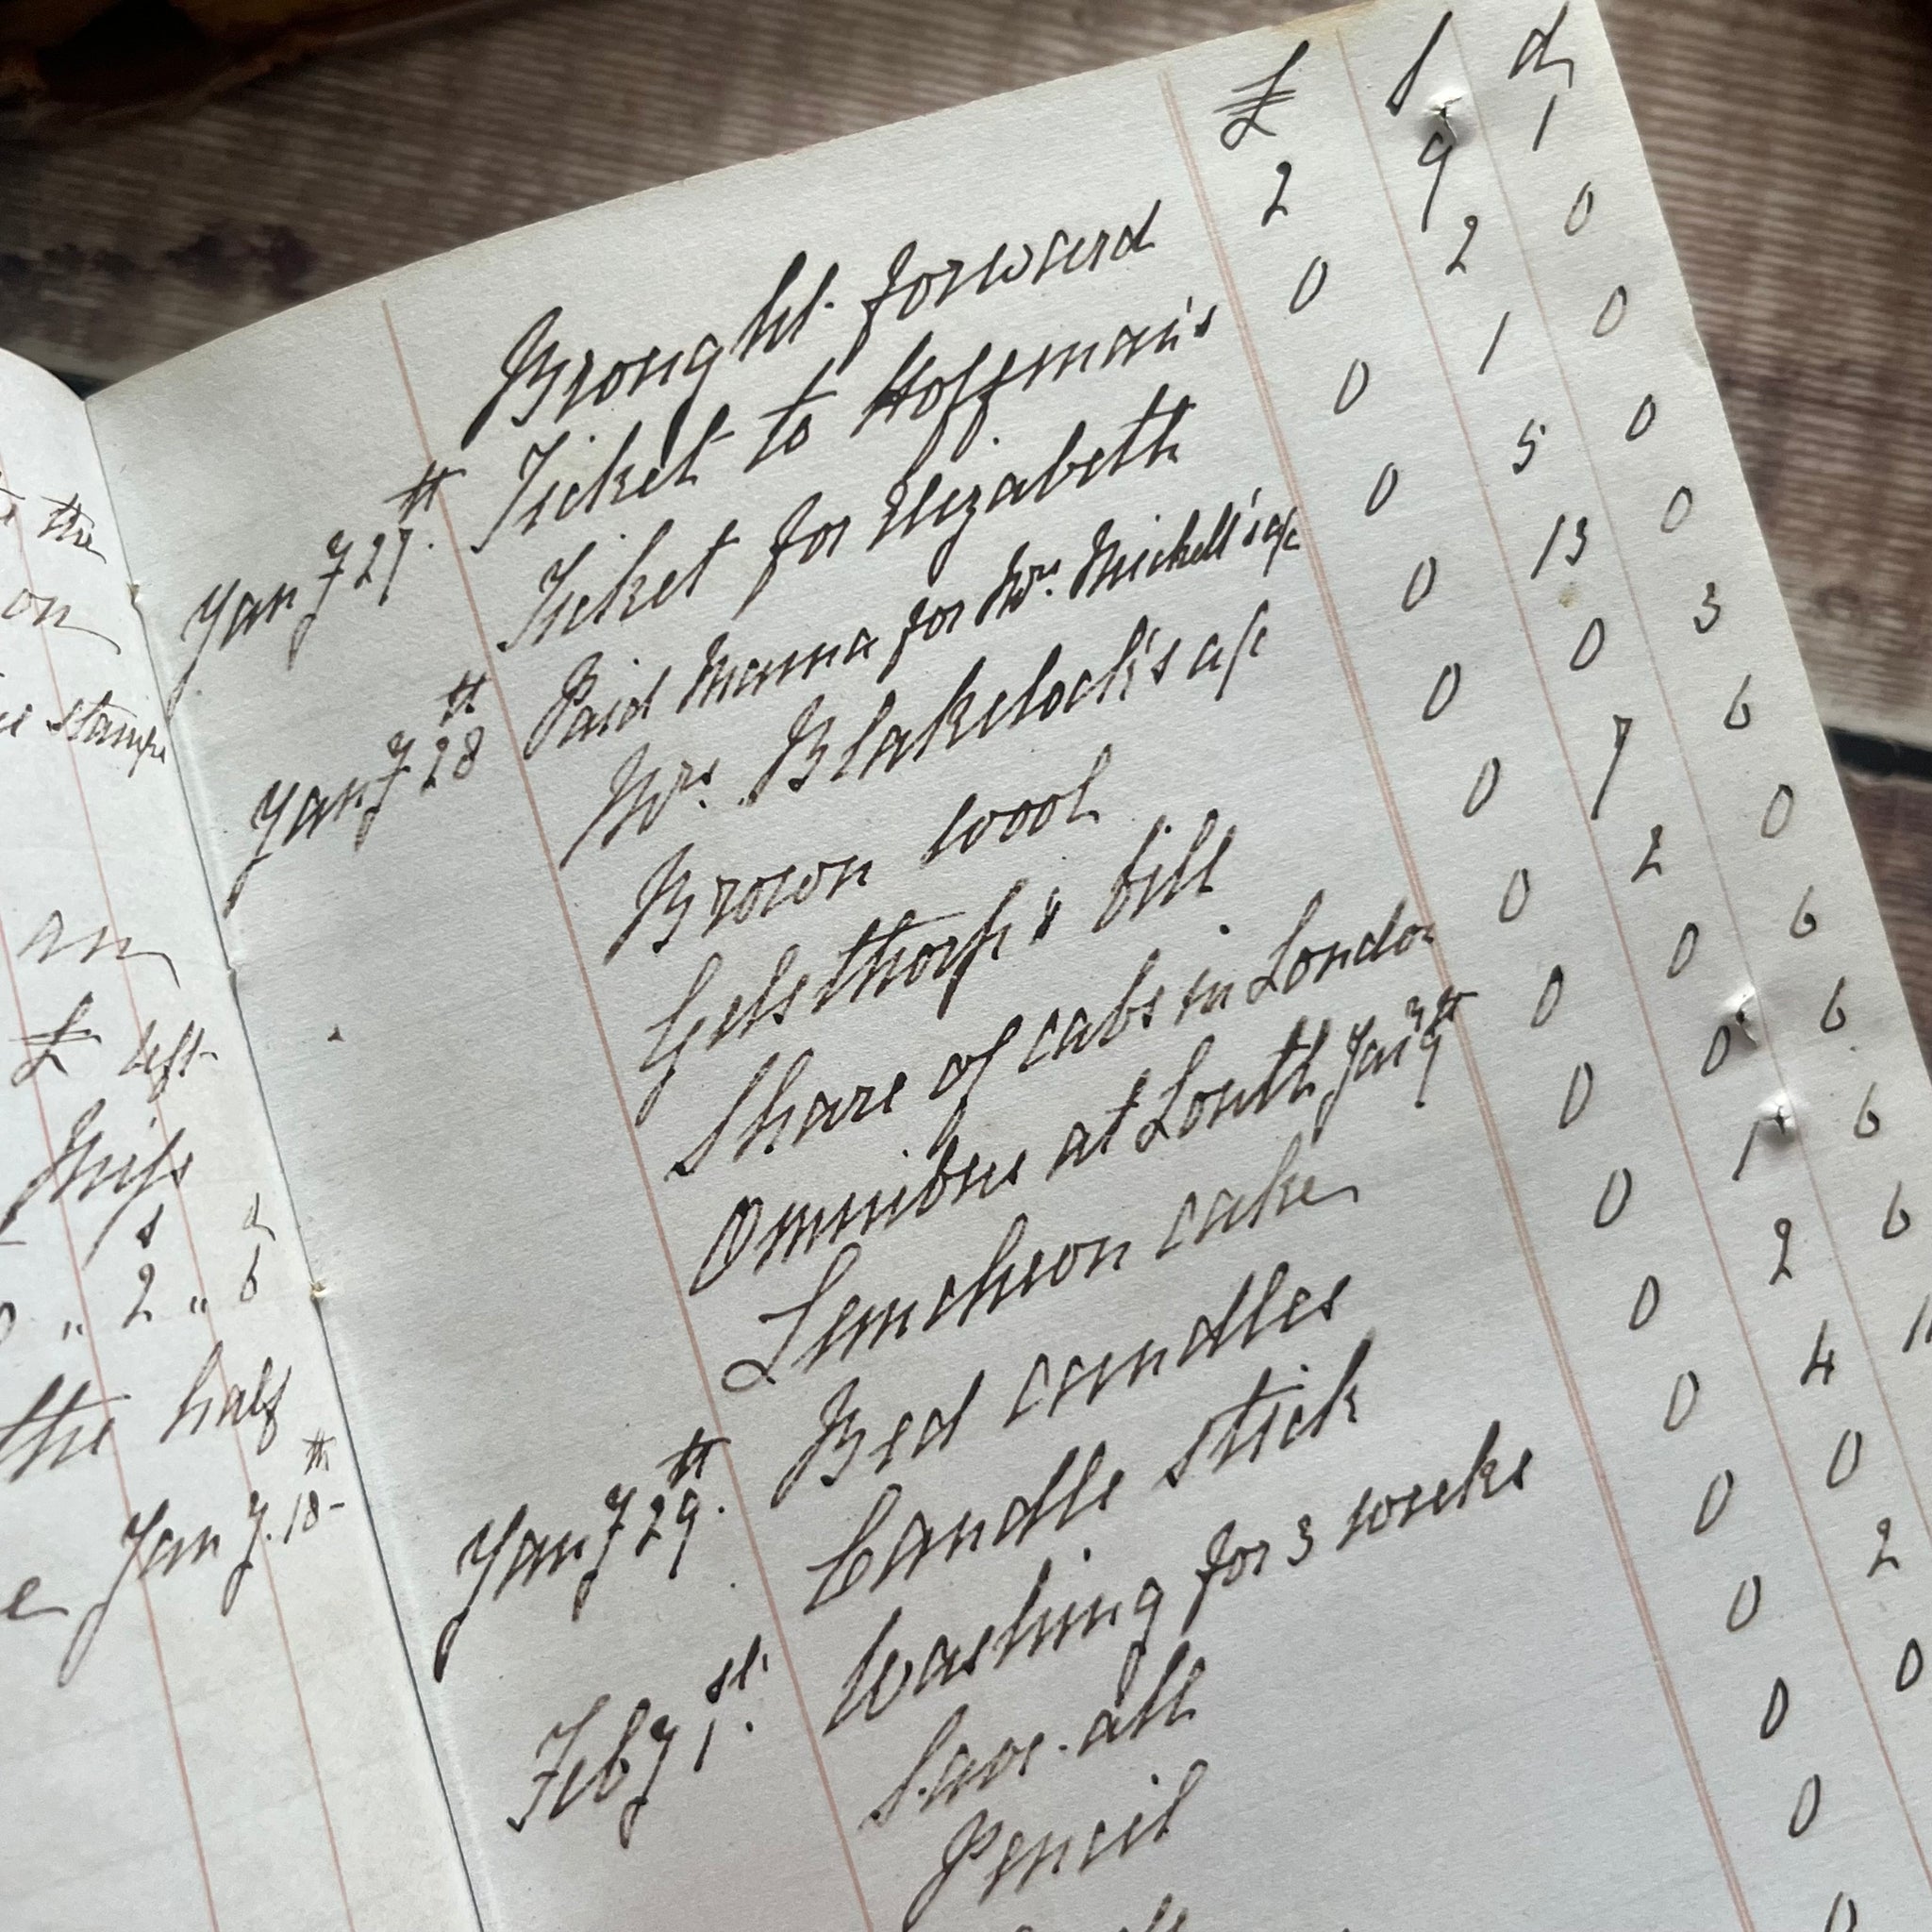 the
on
stamps
am
£ left
Miss
s d
" 2 " 6
the half
Jany. 18th
£ s d
Brought forward 2 9 1
Jany 27th. Ticket to Hoffman's 0 2 0
Ticket for Elizabeth 0 1 0
Jany 28th Paid Mama for Mrs. Michell's a/c 0 5 0
Mrs. Blakelock's a/c 0 13 0
Brown wool 0 0 3
Gelsthorp's bill 0 7 6
Share of cabs in London 0 2 0
Omnibus at Louth Jany 9th 0 0 6
Luncheon cake 0 0 6
Jany 29th. Bed candles 0 1 6
Candle stick 0 2 6
Feby 1st. Washing for 3 weeks 0 4
Save-all 0 0
Pencil 0